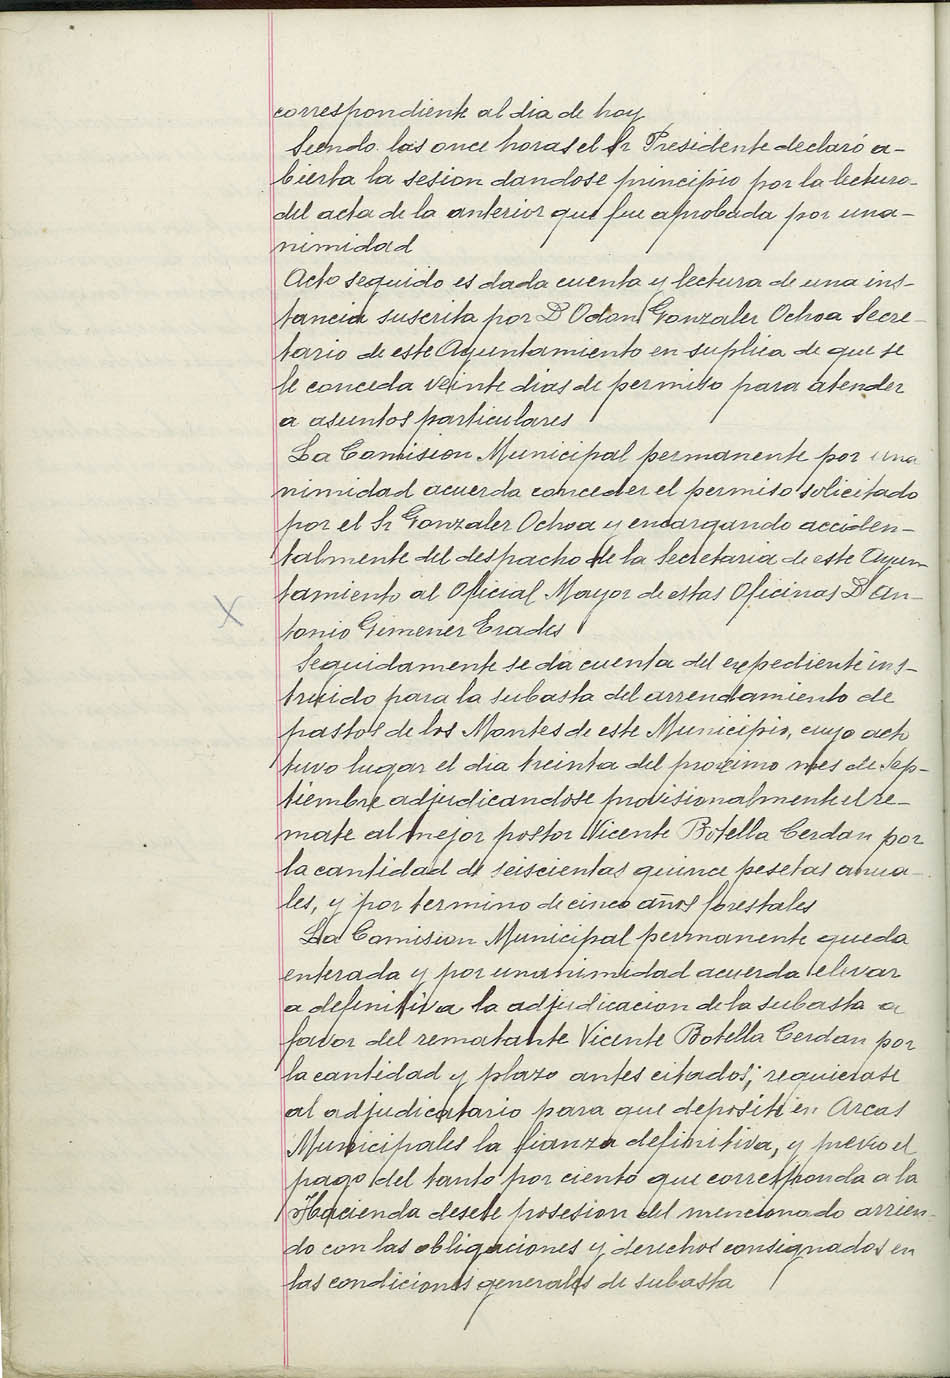 correspondiente al dia de hoy
Siendo las once horas el Sr Presidente declaró a-
bierta la sesion dandose principio por la lectura
del acta de la anterior que fue aprobada por una-
nimidad
Acto seguido es dada cuenta y lectura de una ins-
tancia suscrita por D Odon Gonzalez Ochoa Secre-
tario de este Ayuntamiento en suplica de que se
le conceda veinte dias de permiso para atender
a asuntos particulares
La Comision Municipal permanente por una
nimidad acuerda conceder el permiso solicitado
por el Sr Gonzalez Ochoa y encargando acciden-
talmente del despacho de la Secretaria de este Ayun
tamiento al Oficial Mayor de estas Oficinas D An-
tonio Gimenez Erades
Seguidamente se da cuenta del expediente ins-
truido para la subasta del arrendamiento de
pastos de los Montes de este Municipio, cuyo acto
tuvo lugar el dia treinta del proximo mes de Sep-
tiembre adjudicandose provisionalmente el re-
mate al mejor postor Vicente Botella Cerdan por
la cantidad de seiscientas quince pesetas anua-
les, y por termino de cinco años forestales
La Comision Municipal permanente queda
enterada y por unanimidad acuerda elevar
a definitiva la adjudicacion de la subasta a
favor del rematante Vicente Botella Cerdan por
la cantidad y plazo antes citados; requierase
al adjudicatario para que deposite en Arcas
Municipales la fianza definitiva, y previo el
pago del tanto por ciento que corresponda a la
Hacienda desele posesion del mencionado arrien-
do con las obligaciones y derechos consignados en
las condiciones generales de subasta